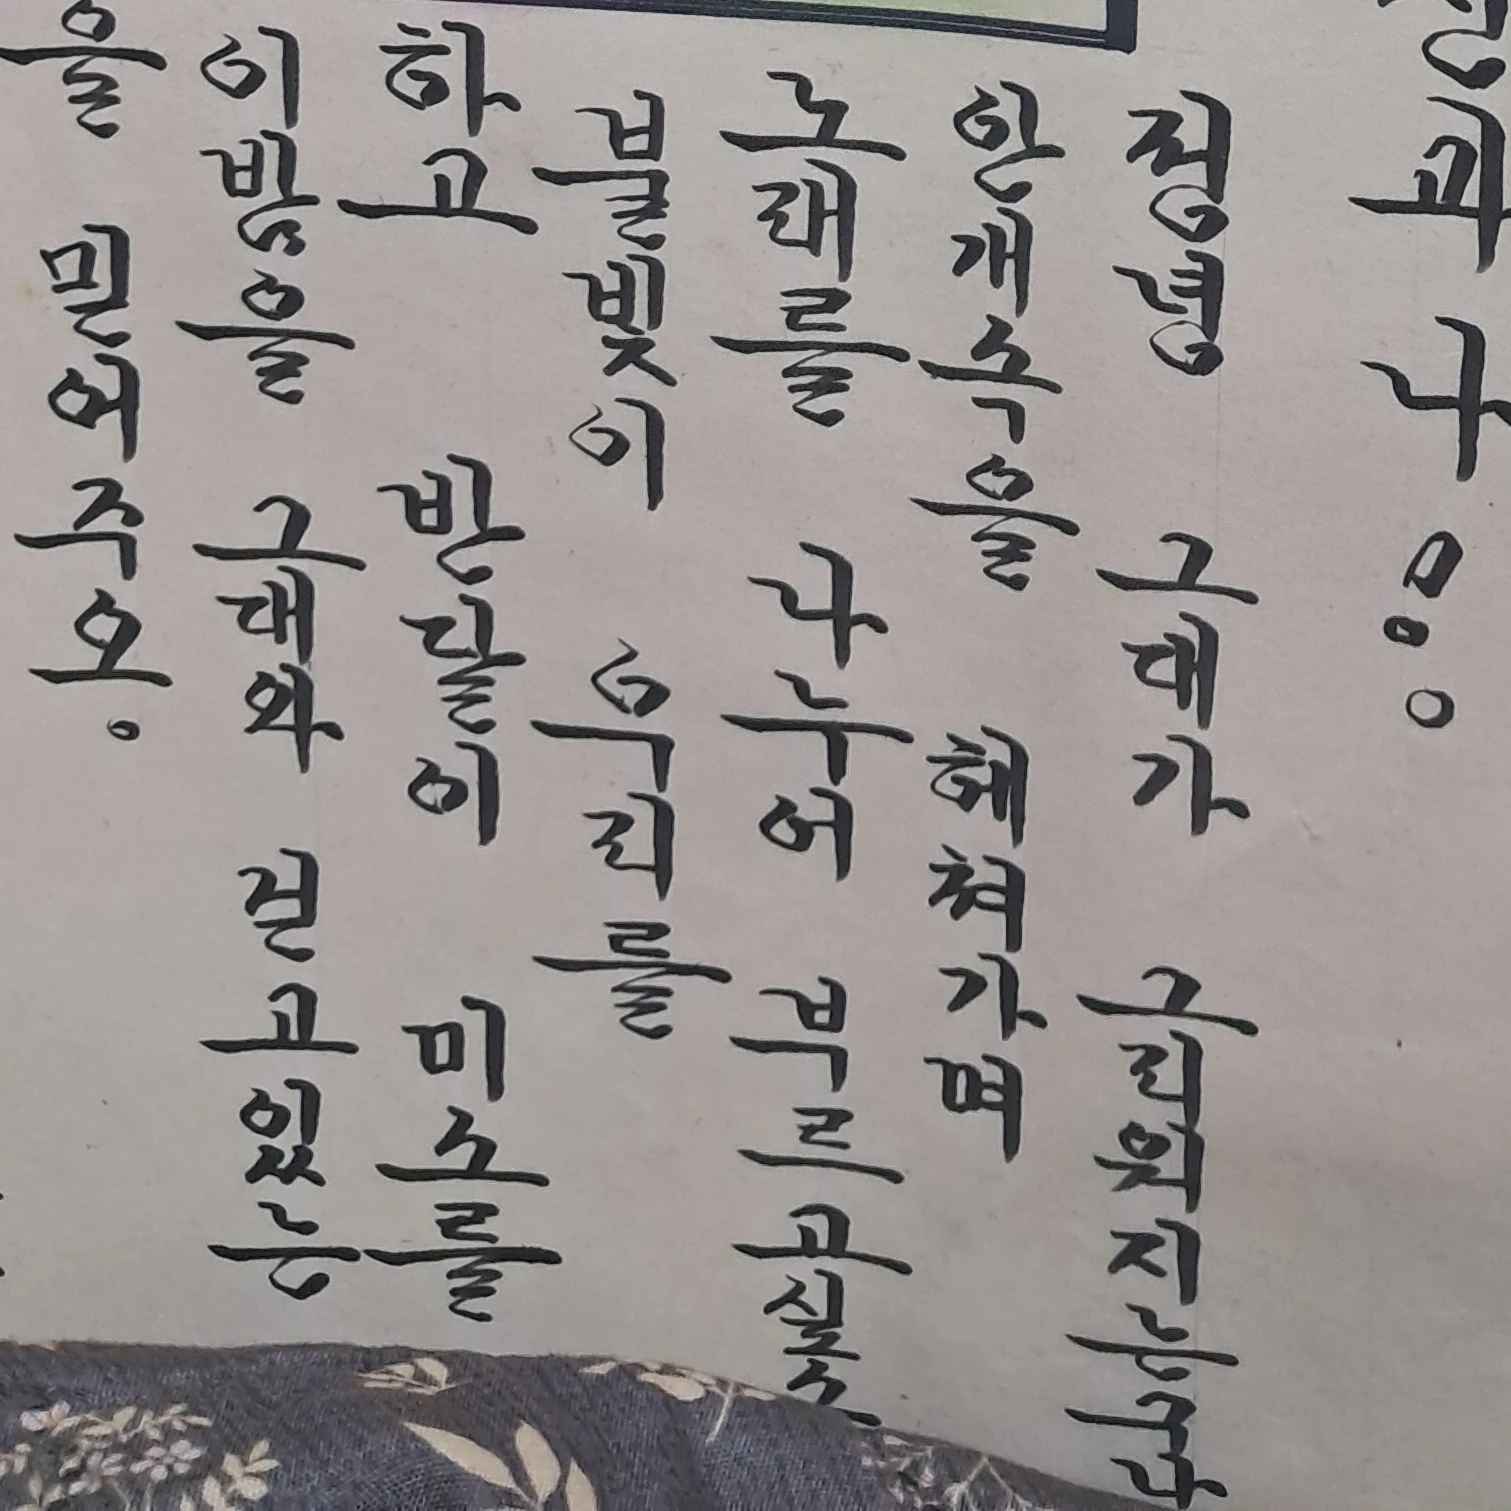 과 나!:。
정녕 그대가 그리워지는구나
안개속을 헤쳐가며
노래를 나누어 부르고싶소
불빛이 우리를
하고 반달이 미소를
이밤을 그대와 걷고있는
을 믿어주오。